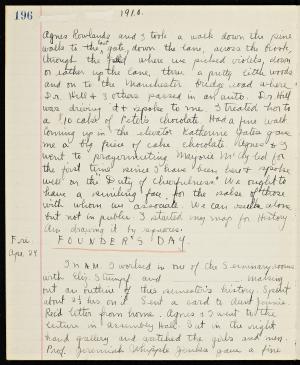 196
1910.
Agnes Rowlands and I took a walk down the pine
walks to the last gate, down the lane, across the brook,
through the field where we picked violets, down
or rather up the lane, thru a pretty little woods
and on to the Manchester Bridge road where
Dr. Hill & 3 others passed in an auto. Dr. Hill
was driving & spoke to me. I treated her to
a 10¢ cake of Peter's chocolate. Had a fine walk
Coming up in the elevator Katherine Gates gave
me a big piece of cake chocolate. Agnes & I
went to prayermeeting. Marjorie led for
the first time since I have been here & spoke
well on the "Duty of Cheerfulness" We ought to
have a smiling face for the sake of those
with whom we associate. We can alone
but not in public. I started my map for History
Am drawing it by squares.
Fri. FOUNDER'S DAY.
Apr. 29
In A.M. I worked in one of the Seminary rooms
with Elsy and making
out an outline of this semester's history. Spent
about 2½ hrs on it. Sent a card to Aunt Jennie.
Recd letter from home. Agnes & I went to the
lecture in assembly Hall. Sat in the right
hand gallery and watched the girls and men.
Prof. Jeremiah Whipple Jenks gave a fine